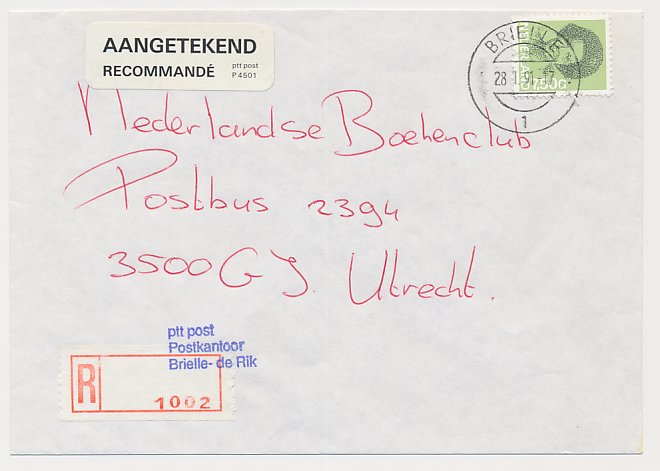 AANGETEKEND
RECOMMANDÉ
ptt post
P4501
BRIELLE
28.1.91-17
1
Nederlandse Boekenclub
Postbus 2394
3500 GJ. Utrecht.
ptt post
Postkantoor
Brielle- de Rik
R
1002